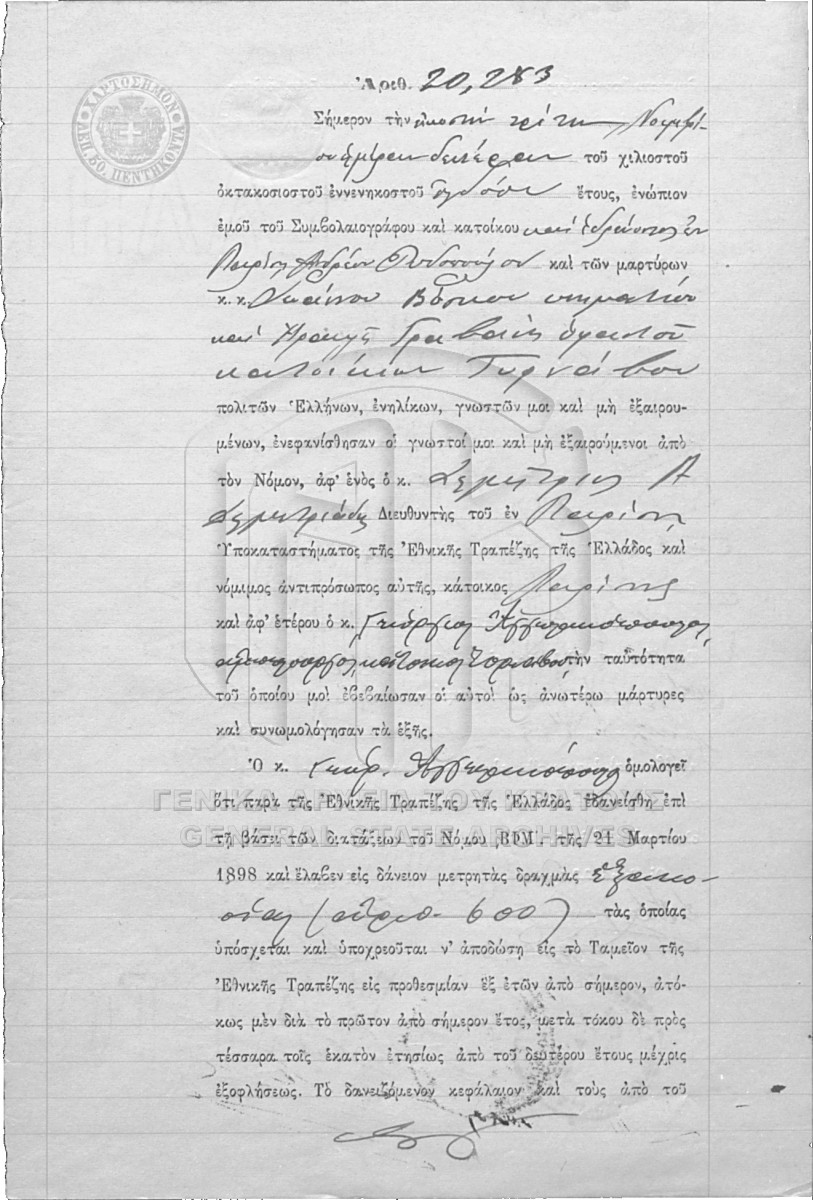 ΧΑΡΤΟΣΗΜΟΝ
ΛΕΠ. 50. ΠΕΝΤΗΚΟΝΤΑ
Ἀριθ. 20,283
Σήμερον τὴν εἰκοστὴν τρίτην Νοεμβρί-
ου ἡμέραν δευτέραν τοῦ χιλιοστοῦ
ὀκτακοσιοστοῦ ἐννενηκοστοῦ ὀγδόου ἔτους, ἐνώπιον
ἐμοῦ τοῦ Συμβολαιογράφου καὶ κατοίκου καὶ ἑδρεύοντος ἐν
Λαρίσῃ Ἀνδρέου Ῥοδοπούλου καὶ τῶν μαρτύρων
κ. κ.
καὶ
κατοίκων Τυρνάβου
πολιτῶν Ἑλλήνων, ἐνηλίκων, γνωστῶν μοι καὶ μὴ ἐξαιρου-
μένων, ἐνεφανίσθησαν οἱ γνωστοί μοι καὶ μὴ ἐξαιρούμενοι ἀπὸ
τὸν Νόμον, ἀφ' ἑνὸς ὁ κ. Δημήτριος Α
Δημητριάδης Διευθυντὴς τοῦ ἐν Λαρίσῃ
Ὑποκαταστήματος τῆς Ἐθνικῆς Τραπέζης τῆς Ἑλλάδος καὶ
νόμιμος ἀντιπρόσωπος αὐτῆς, κάτοικος Λαρίσης
καὶ ἀφ' ἑτέρου ὁ κ. Γεώργιος
κάτοικος Τυρνάβου, τὴν ταὐτότητα
τοῦ ὁποίου μοὶ ἐβεβαίωσαν οἱ αὐτοὶ ὡς ἀνωτέρω μάρτυρες
καὶ συνωμολόγησαν τὰ ἑξῆς.
Ὁ κ. Γεώρ. ὁμολογεῖ
ΓΕΝΙΚΑ ΑΡΧΕΙΑ ΤΟΥ ΚΡΑΤΟΥΣ
ὅτι παρὰ τῆς Ἐθνικῆς Τραπέζης τῆς Ἑλλάδος ἐδανείσθη ἐπὶ
GENERAL STATE ARCHIVES
τῇ βάσει τῶν διατάξεων τοῦ Νόμου ͵ΒΦΜ. τῆς 21 Μαρτίου
1898 καὶ ἔλαβεν εἰς δάνειον μετρητὰς δραχμὰς ἑξακο-
σίας (ἀριθ. 600) τὰς ὁποίας
ὑπόσχεται καὶ ὑποχρεοῦται ν' ἀποδώσῃ εἰς τὸ Ταμεῖον τῆς
Ἐθνικῆς Τραπέζης εἰς προθεσμίαν ἓξ ἐτῶν ἀπὸ σήμερον, ἀτό-
κως μὲν διὰ τὸ πρῶτον ἀπὸ σήμερον ἔτος, μετὰ τόκου δὲ πρὸς
τέσσαρα τοῖς ἑκατὸν ἐτησίως ἀπὸ τοῦ δευτέρου ἔτους μέχρις
ἐξοφλήσεως. Τὸ δανειζόμενον κεφάλαιον καὶ τοὺς ἀπὸ τοῦ